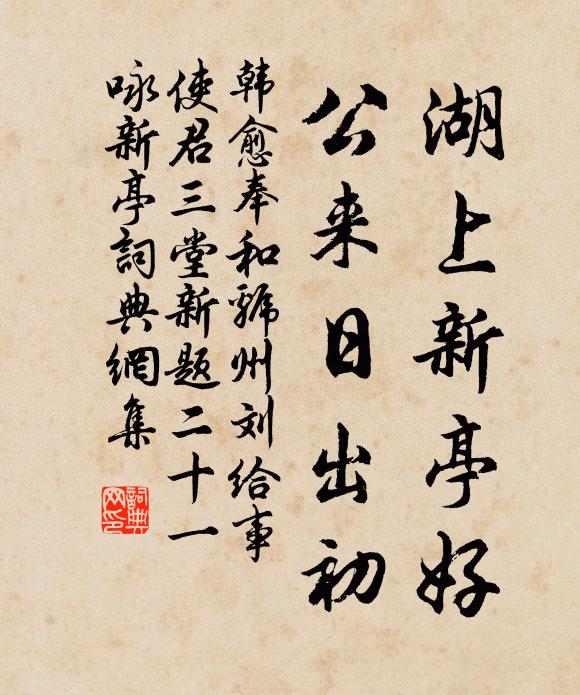 湖上新亭好
公来日出初
韩愈奉和虢州刘给事
使君三堂新题二十一
咏新亭詞典網集
詞典网印